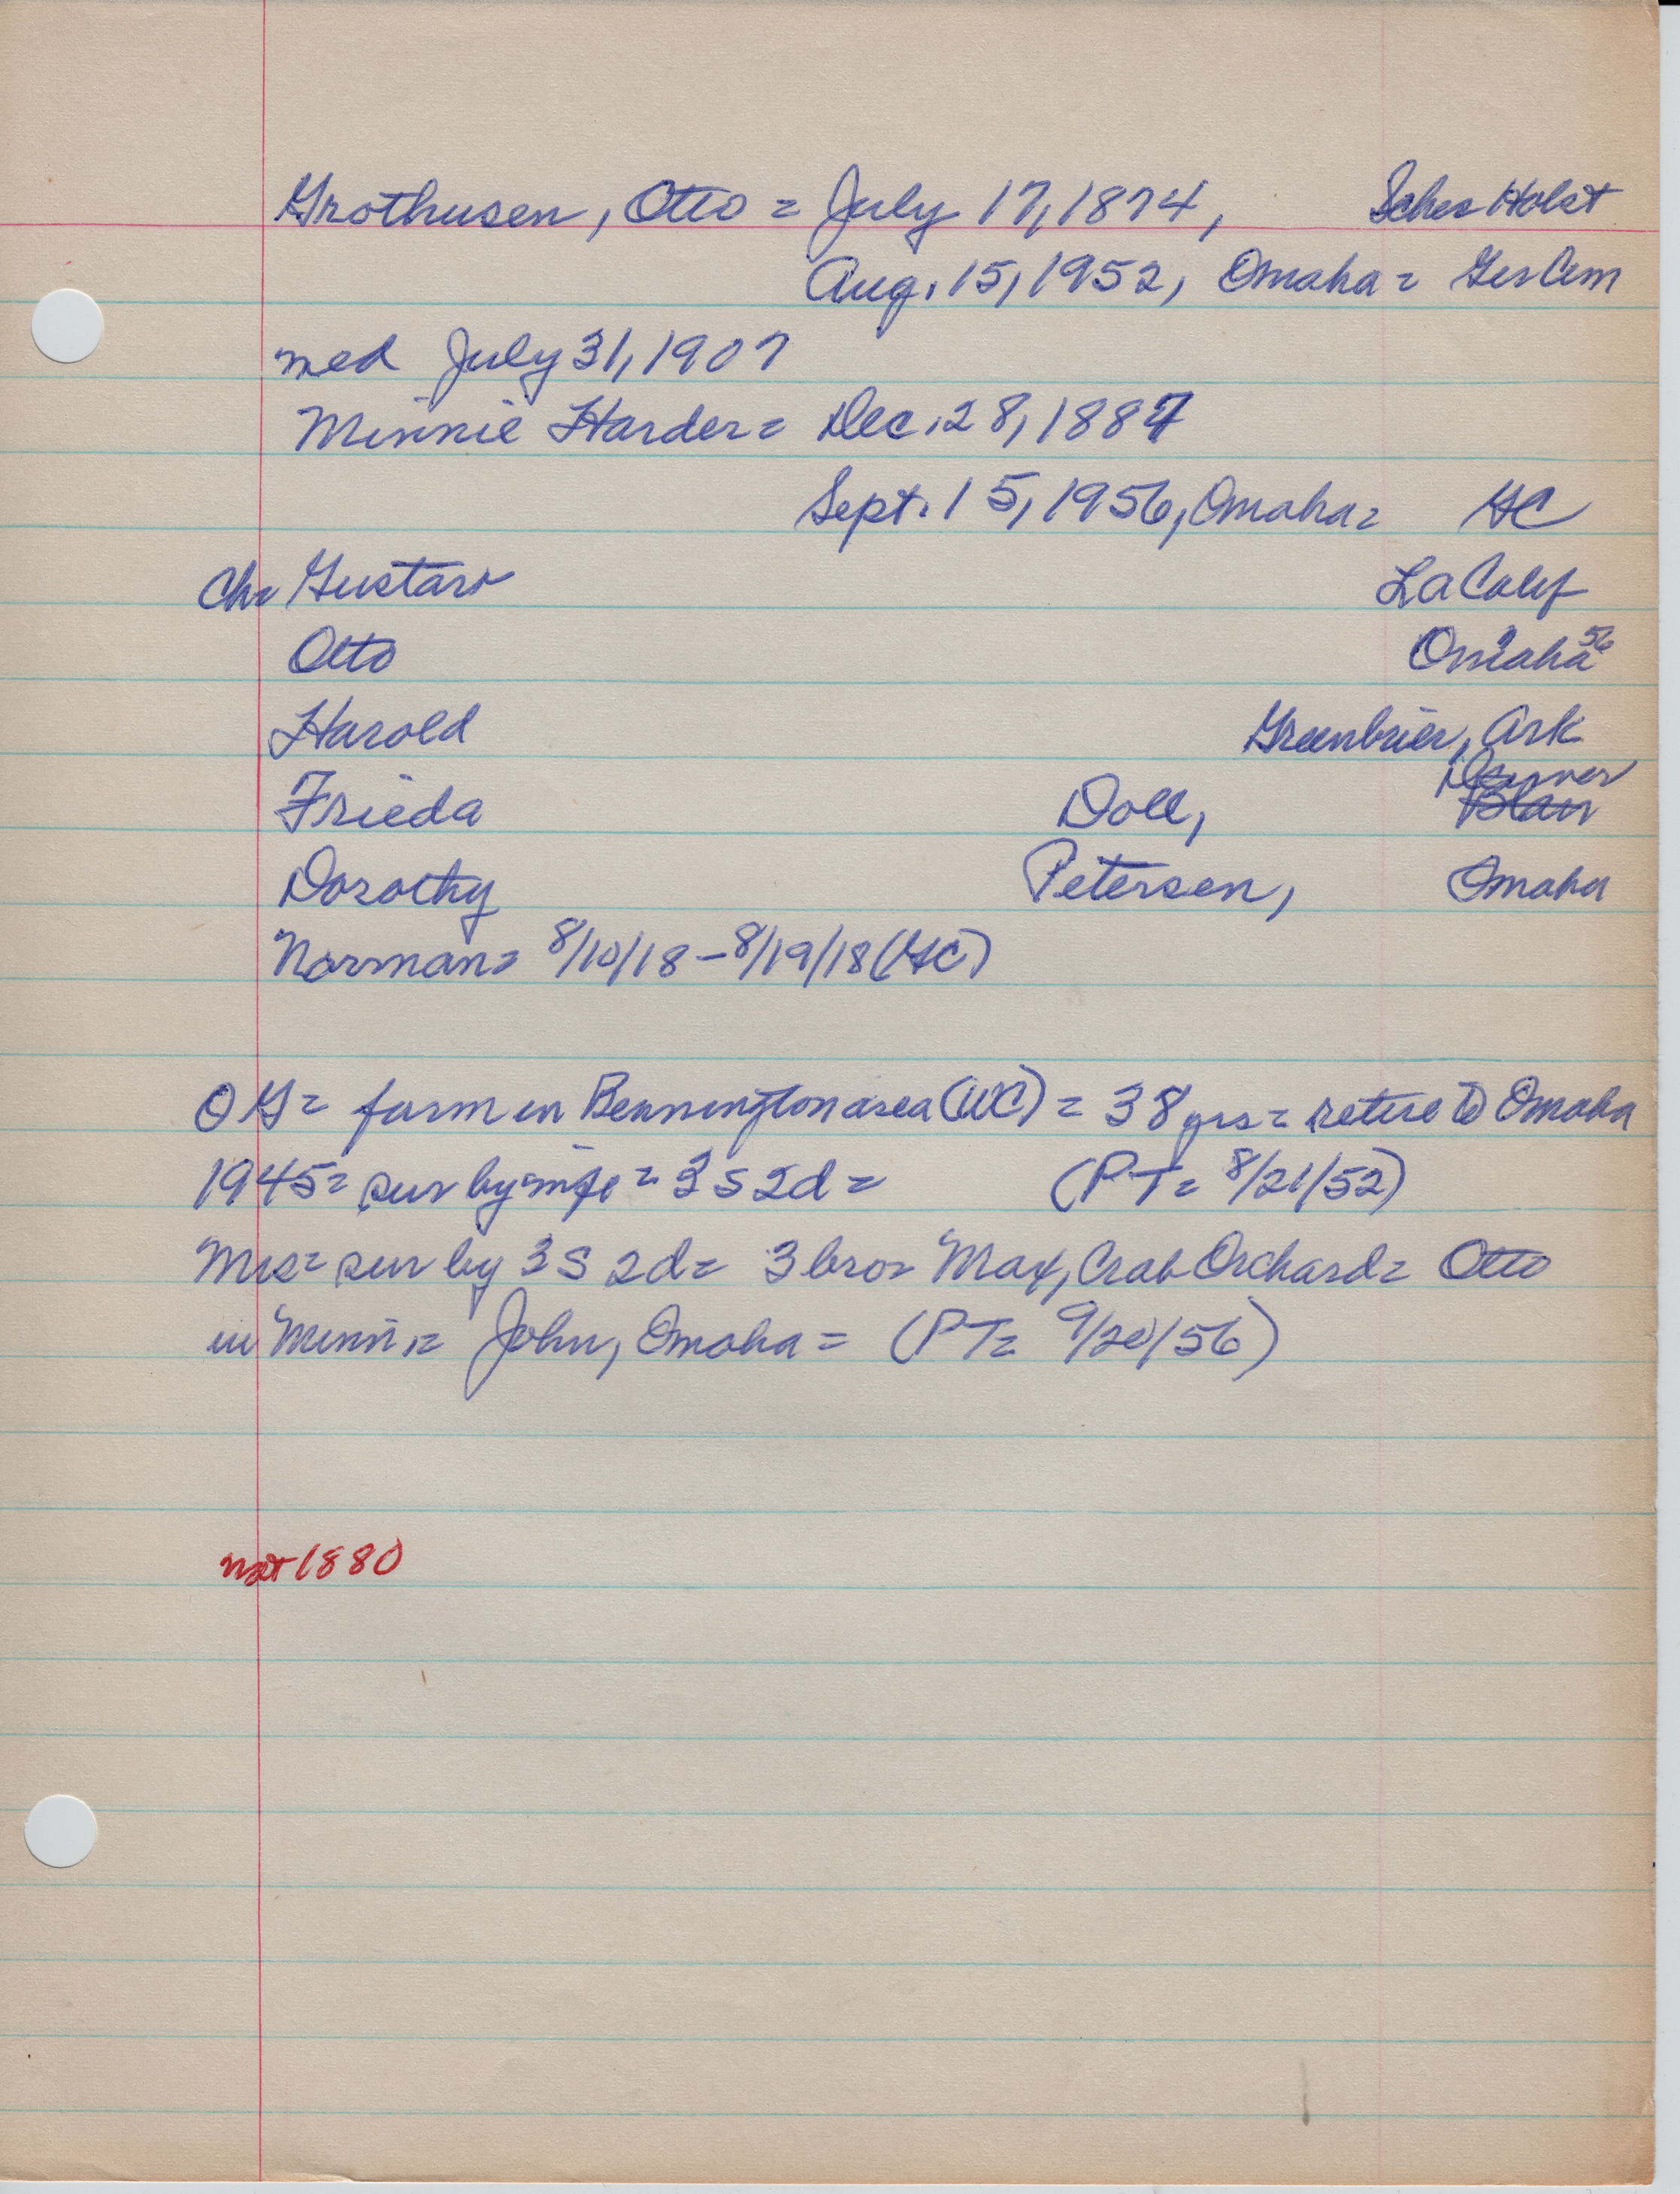 Grothusen, Otto = July 17, 1874, Schles Holst
Aug. 15, 1952, Omaha = Ger Cem
med July 31, 1907
Minnie Harder = Dec. 28, 1887
Sept. 15, 1956, Omaha = GC
Ch = Gustav La Calif
Otto Omaha 56
Harold Greenbrier, Ark
Frieda Doll, Denver Blair
Dorothy Petersen, Omaha
Norman = 8/10/18 – 8/19/18 (GC)
OG = farm in Bennington area (WC) = 38 yrs = retire to Omaha
1945 = sur by wife = 3 s 2d = (PT = 8/21/52)
Mrs = sur by 3 S 2d = 3 bro = Max, Crab Orchard = Otto
in Minn. = John, Omaha = (PT = 9/20/56)
not 1880